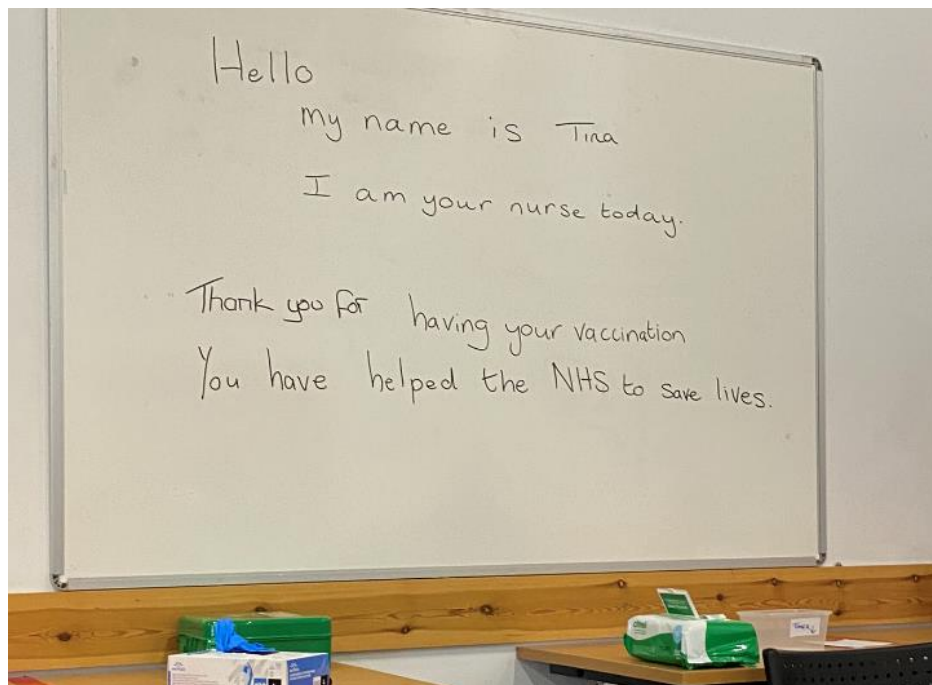 Hello
my name is Tina
I am your nurse today.
Thank you for having your vaccination
You have helped the NHS to save lives.